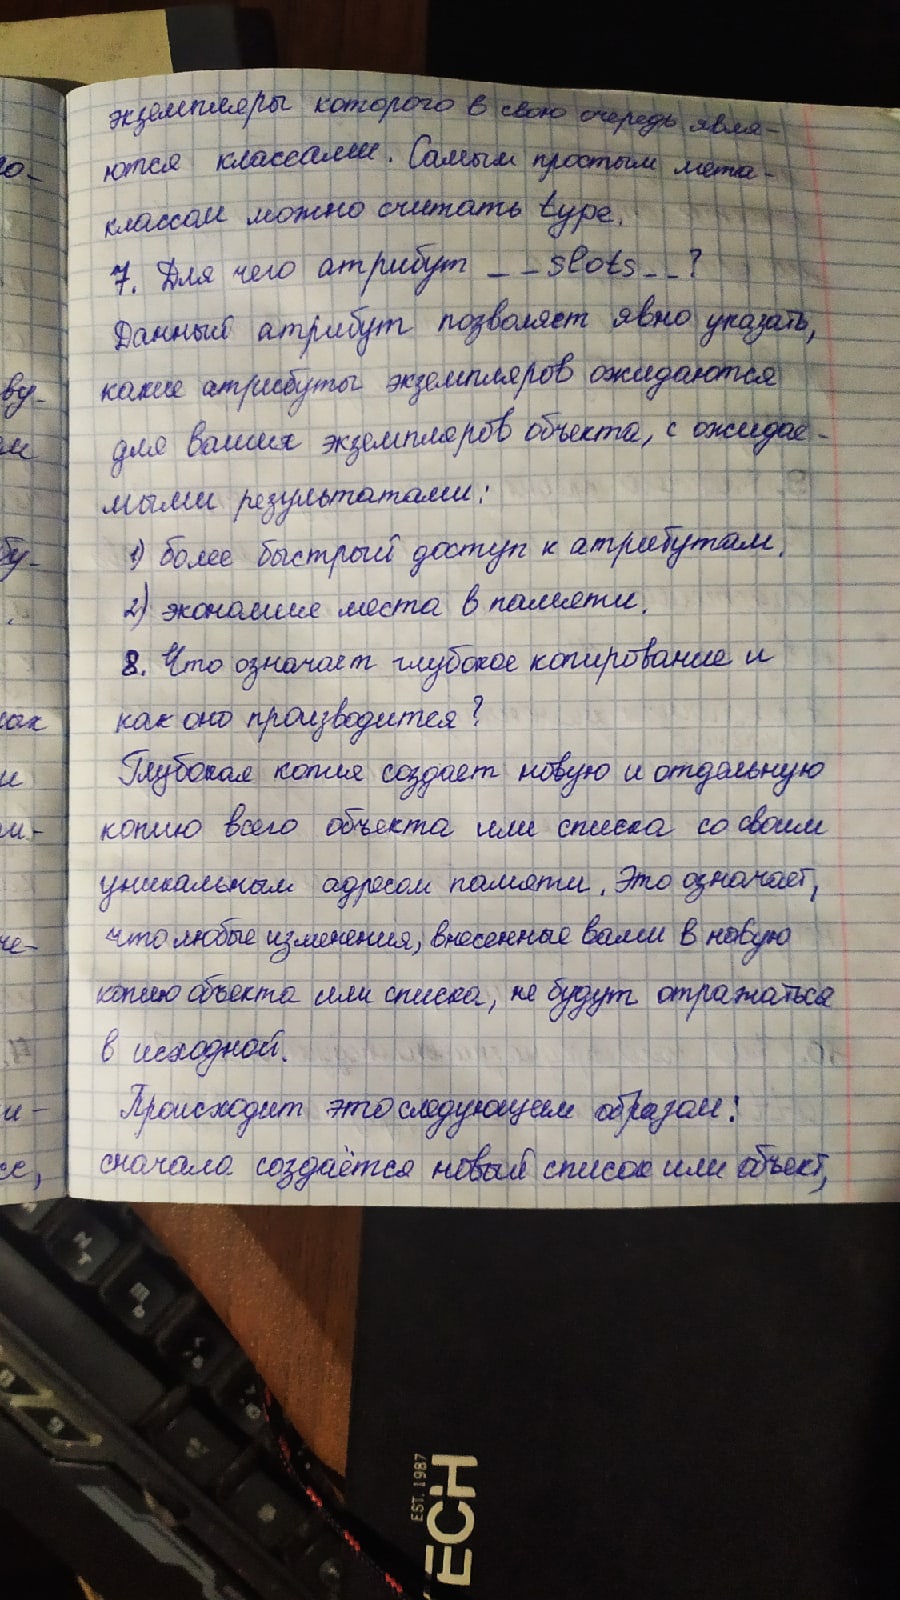 экземпляры которого в свою очередь явля-
ются классами. Самым простым мета-
классом можно считать type.
7. Для чего атрибут __slots__?
Данный атрибут позволяет явно указать,
какие атрибуты экземпляров ожидаются
для ваших экземпляров объекта, с ожидае-
мыми результатами:
1) более быстрый доступ к атрибутам.
2) экономие места в памяти.
8. Что означает глубокое копирование и
как оно производится?
Глубокая копия создает новую и отдельную
копию всего объекта или списка со своим
уникальным адресом памяти. Это означает,
что любые изменения, внесенные вами в новую
копию объекта или списка, не будут отражаться
в исходной.
Происходит это следующим образом:
сначала создаётся новый список или объект,
EST. 1987
ECH